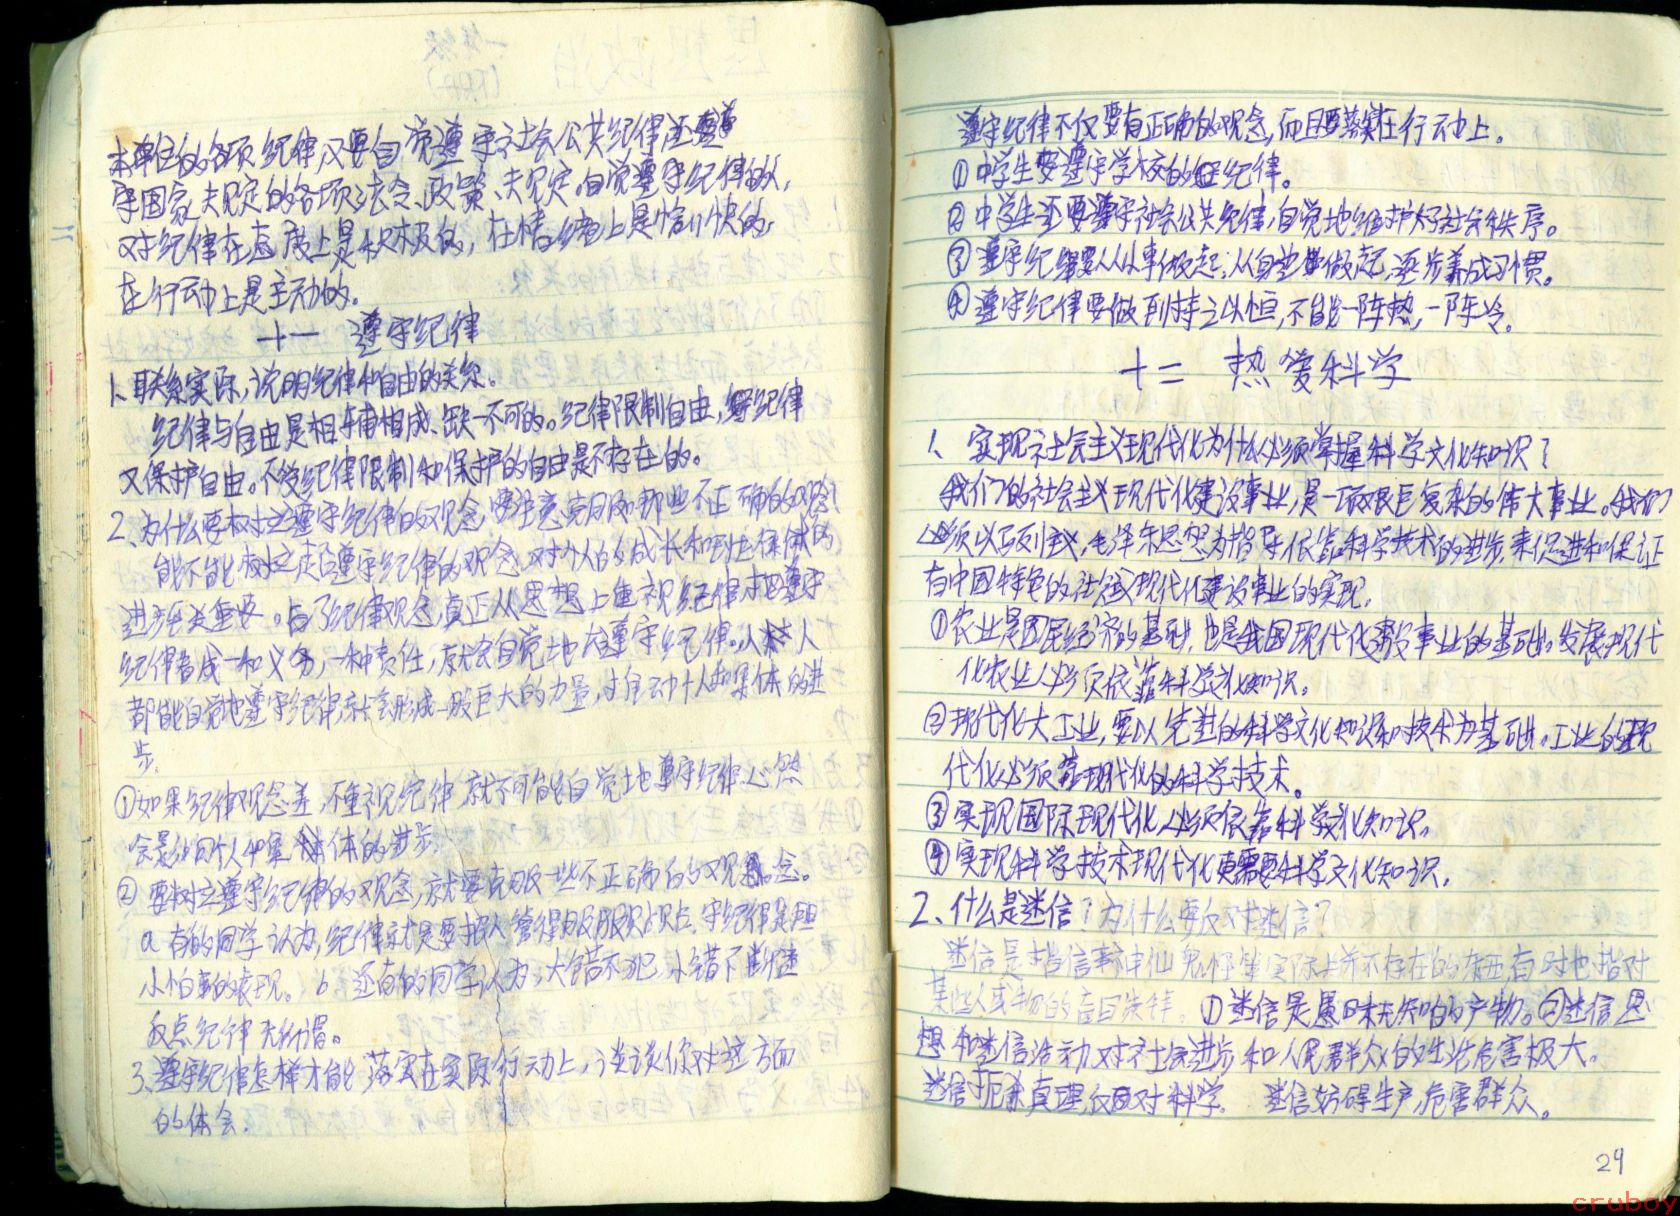 本单位的各项纪律,又要自觉遵守社会公共纪律,还要遵
守国家规定的各项法令、政策、规定。自觉遵守纪律的人,
对纪律在态度上是积极的,在情绪上是愉快的,
在行动上是主动的。
十一 遵守纪律
1、联系实际,说明纪律和自由的关系。
纪律与自由是相辅相成、缺一不可的。纪律限制自由,纪律
又保护自由。不受纪律限制和保护的自由是不存在的。
2、为什么要树立遵守纪律的观念,要注意克服那些不正确的观念?
能不能树立起遵守纪律的观念,对个人的成长和集体的
进步至关重要。有了纪律观念,真正从思想上重视纪律,把遵守
纪律看成一种义务,一种责任,就会自觉地遵守纪律。人人
都能自觉地遵守纪律就会形成一股巨大的力量,推动个人和集体的进
步。
①如果纪律观念差,不重视纪律,就不可能自觉地遵守纪律,必然
会影响个人和集体的进步。
②要树立遵守纪律的观念,就要克服一些不正确的观念。
a 有的同学认为,纪律就是要把人管得服服贴贴,守纪律是胆
小怕事的表现。 b 还有的同学认为,大错不犯,小错不断,违
反点纪律无所谓。
3、遵守纪律怎样才能落实在实际行动上,谈谈你对这方面
的体会。
遵守纪律不仅要有正确的观念,而且要落实在行动上。
①中学生要遵守学校的纪律。
②中学生还要遵守社会公共纪律,自觉地维护好社会秩序。
③遵守纪律要从小事做起,从自己做起,逐步养成习惯。
④遵守纪律要做到持之以恒,不能一阵热,一阵冷。
十二 热爱科学
1、实现社会主义现代化为什么必须掌握科学文化知识?
我们的社会主义现代化建设事业,是一项艰巨复杂的伟大事业。我们
必须以马列主义,毛泽东思想为指导,依靠科学技术的进步,来促进和保证
有中国特色的社会主义现代化建设事业的实现。
①农业是国民经济的基础,也是我国现代化建设事业的基础。发展现代
化农业,必须依靠科学文化知识。
②现代化大工业,要以先进的科学文化知识和技术为基础。工业的现
代化必须靠现代化的科学技术。
③实现国际现代化,必须依靠科学文化知识。
④实现科学技术现代化更需要科学文化知识。
2、什么是迷信?为什么要反对迷信?
迷信是指信奉神仙鬼怪等实际上并不存在的东西,有时也指对
某些人或物的盲目崇拜。①迷信是愚昧无知的产物。②迷信思
想和迷信活动,对社会进步和人民群众的生活危害极大。
迷信扼杀真理,反对科学。 迷信妨碍生产,危害群众。
29
cruboy